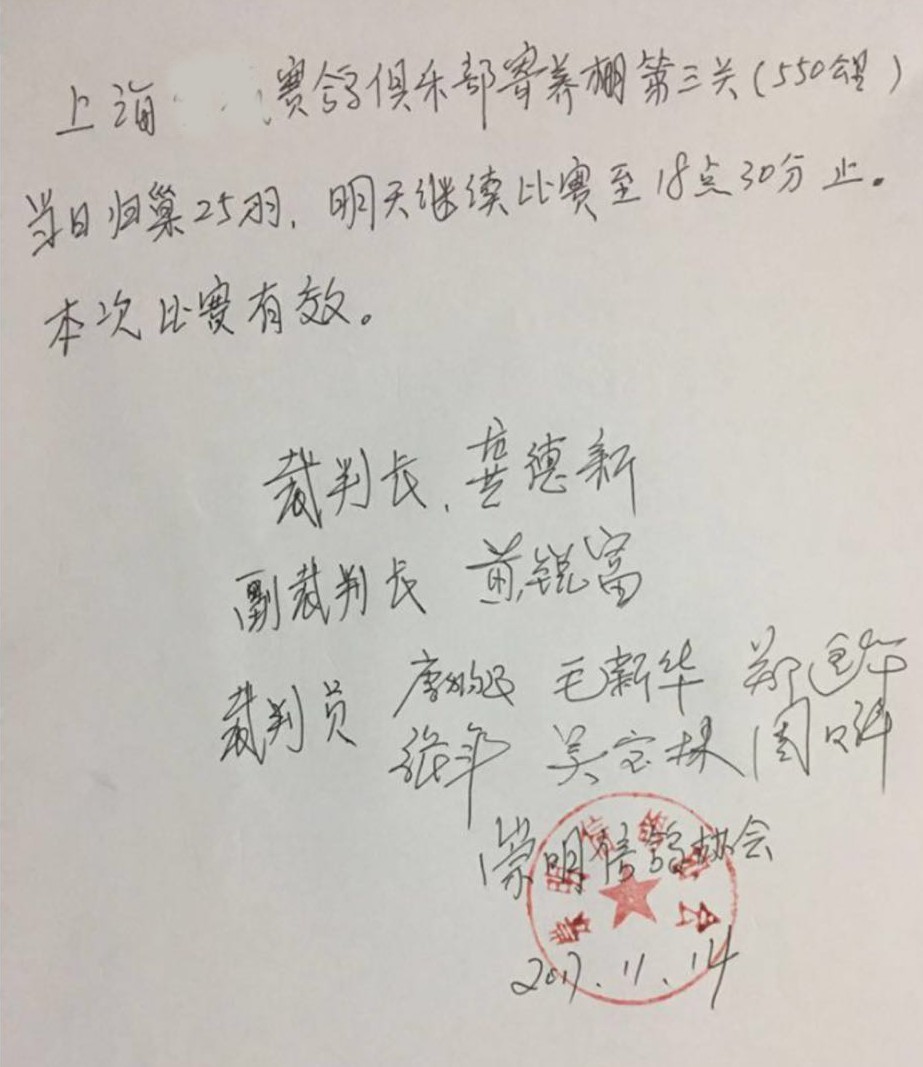 上海 赛鸽俱乐部寄养棚第三关(550公里)
当日归巢25羽,明天继续比赛至18点30分止。
本次比赛有效。
裁判长、龚德新
副裁判长 黄锐富
裁判员 唐 毛新华 郑建华
张军 吴宝林 周
崇明信鸽协会
崇明信鸽协会
2017.11.14